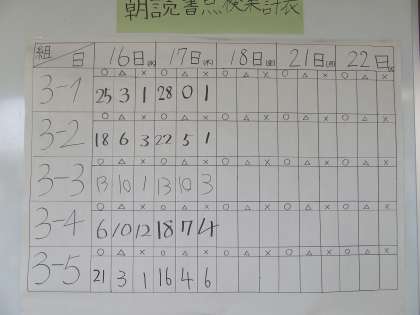 朝読書点検集計表
組 日 16日(水) 17日(木) 18日(金) 21日(月) 22日(火)
○ △ × ○ △ × ○ △ × ○ △ × ○ △ ×
3-1 25 3 1 28 0 1
○ △ × ○ △ × ○ △ × ○ △ × ○ △ ×
3-2 18 6 3 22 5 1
○ △ × ○ △ × ○ △ × ○ △ × ○ △ ×
3-3 13 10 1 13 10 3
○ △ × ○ △ × ○ △ × ○ △ × ○ △ ×
3-4 6 10 12 18 7 4
○ △ × ○ △ × ○ △ × ○ △ × ○ △ ×
3-5 21 3 1 16 4 6